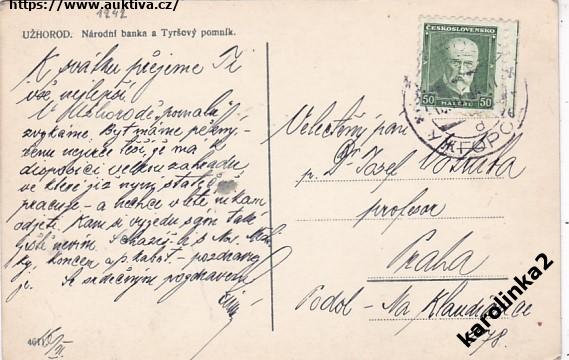 https://www.auktiva.cz/
1242
UŽHOROD. Národní banka a Tyršový pomník.
K svátku přejeme Ti
vše nejlepší.
V Užhorodě pomalu
zvykáme. Byt máme pěkný,
ženu nejvíce těší, že má k
disposici velkou zahradu
ve které již nyní stále
pracuje – a nechce v létě nikam
odjeti. Kam si vyjedu sám také
ještě nevím.
koncem a p. – pozdravuj
je. Se srdečným pozdravem
ČESKOSLOVENSKO
50 HALÉŘŮ 50
УЖГОРОД
Velectěný pan
p. Dr Josef
profesor
Praha
Podol – Na Klaudiánce
78.
karolinka2